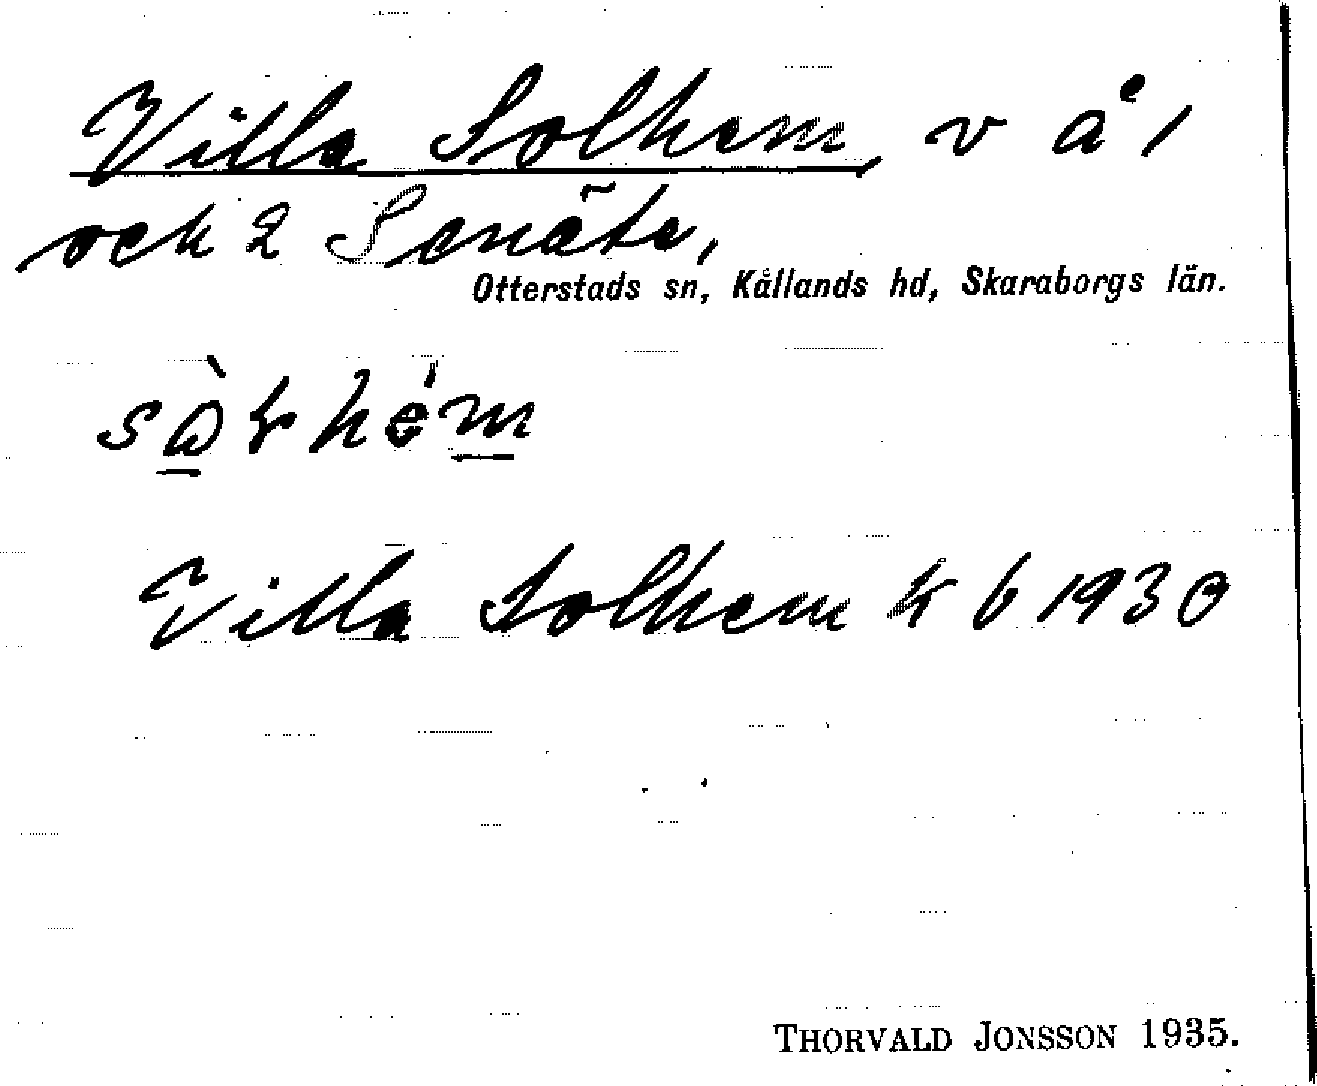 Villa Solhem, v å 1
och 2 Senäte,
Otterstads sn, Kållands hd, Skaraborgs län.
Villa Solhem kb 1930
THORVALD JONSSON 1935.